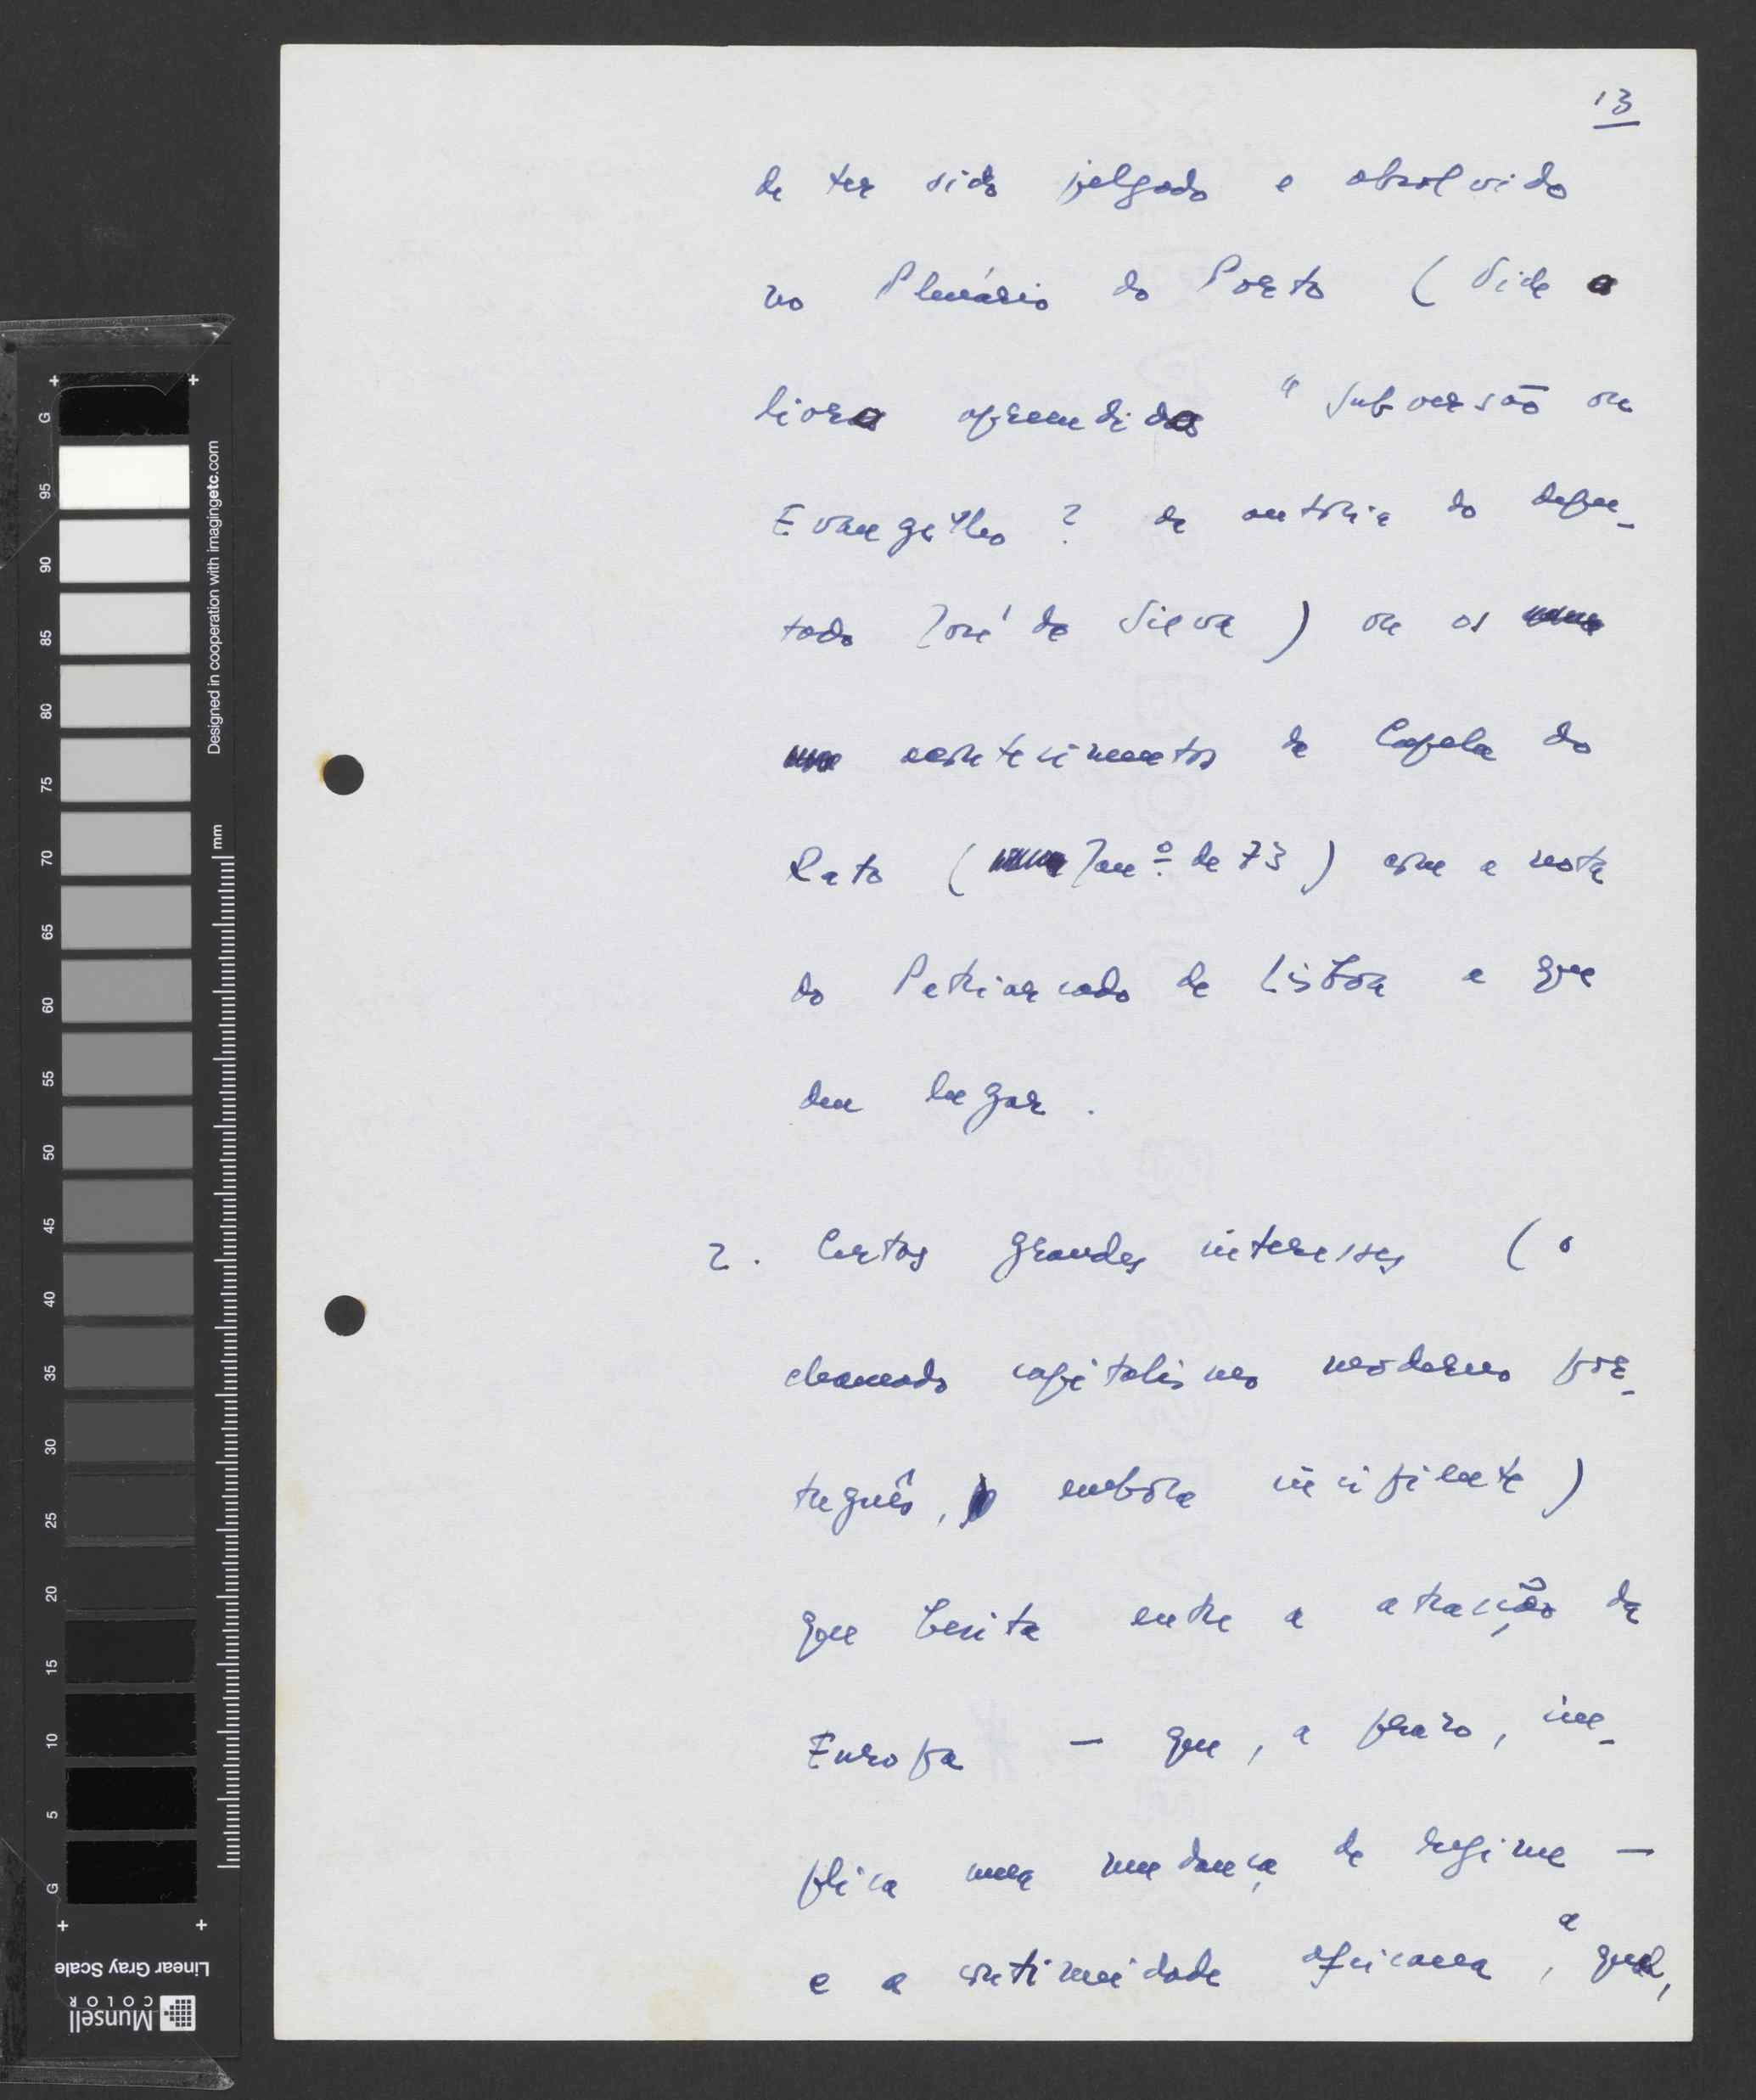 13
de ter sido julgado e absolvido
no Plenário do Porto (Vide o
livro apreendido "Subversão ou
Evangelho? de autoria do depu-
tado José da Silva) ou os
acontecimentos da Capela do
Rato (Janº de 73) com a nota
do Patriarcado de Lisboa a que
deu lugar.
2. Certos grandes interesses (o
chamado capitalismo moderno por-
tuguês, embora incipiente)
que hesita entre a atracção da
Europa — que, a prazo, im-
plica uma mudança de regime —
e a continuidade africana, a qual,
G
95
90
85
80
75
70
65
60
55
50
45
40
35
30
25
20
15
10
5
G
mm
Designed in cooperation with imagingetc.com
Linear Gray Scale
Munsell
COLOR